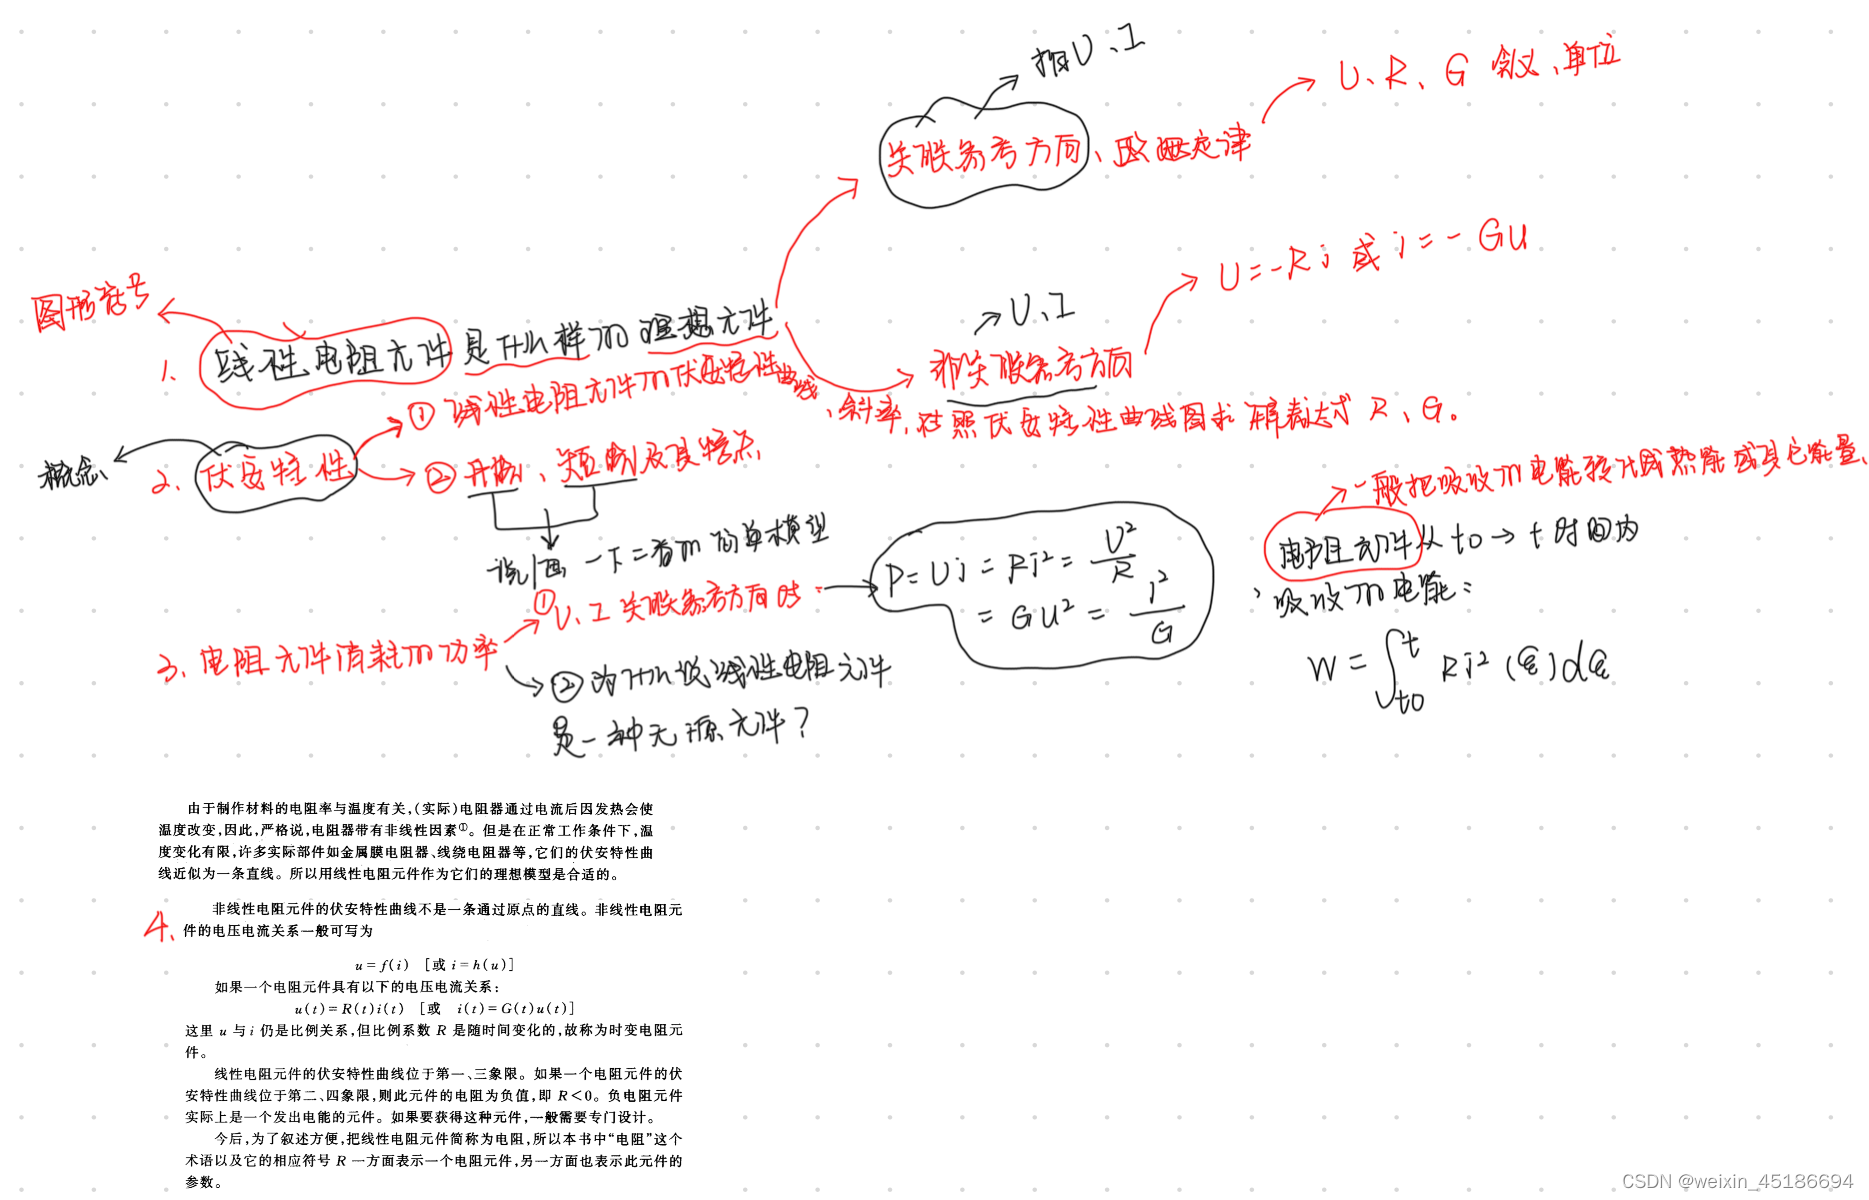 指U、I
U、R、G 含义、单位
关联参考方向、欧姆定律
U=-Ri 或 i=-GU
图形符号
→U、I
1. 线性电阻元件是什么样的理想元件
非关联参考方向
① 线性电阻元件的伏安特性曲线、斜率,对照伏安特性曲线图求 R、G。
概念、
2. 伏安特性
② 开路、短路及其特点、
一般把吸收的电能转化成热能或其它能量、
说/画一下二者的简单模型
电阻元件从t0→t时间内
吸收的电能:
P=Ui=Ri²=U²/R
=GU²=i²/G
① U、I关联参考方向时
3. 电阻元件消耗的功率
② 为什么说线性电阻元件
是一种无源元件?
W=∫t0 t Ri²(ξ)dξ
由于制作材料的电阻率与温度有关,(实际)电阻器通过电流后因发热会使
温度改变,因此,严格说,电阻器带有非线性因素①。但是在正常工作条件下,温
度变化有限,许多实际部件如金属膜电阻器、线绕电阻器等,它们的伏安特性曲
线近似为一条直线。所以用线性电阻元件作为它们的理想模型是合适的。
非线性电阻元件的伏安特性曲线不是一条通过原点的直线。非线性电阻元
4. 件的电压电流关系一般可写为
u=f(i) [或 i=h(u)]
如果一个电阻元件具有以下的电压电流关系:
u(t)=R(t)i(t) [或 i(t)=G(t)u(t)]
这里 u 与 i 仍是比例关系,但比例系数 R 是随时间变化的,故称为时变电阻元
件。
线性电阻元件的伏安特性曲线位于第一、三象限。如果一个电阻元件的伏
安特性曲线位于第二、四象限,则此元件的电阻为负值,即 R<0。负电阻元件
实际上是一个发出电能的元件。如果要获得这种元件,一般需要专门设计。
今后,为了叙述方便,把线性电阻元件简称为电阻,所以本书中“电阻”这个
术语以及它的相应符号 R 一方面表示一个电阻元件,另一方面也表示此元件的
参数。
CSDN @weixin_45186694